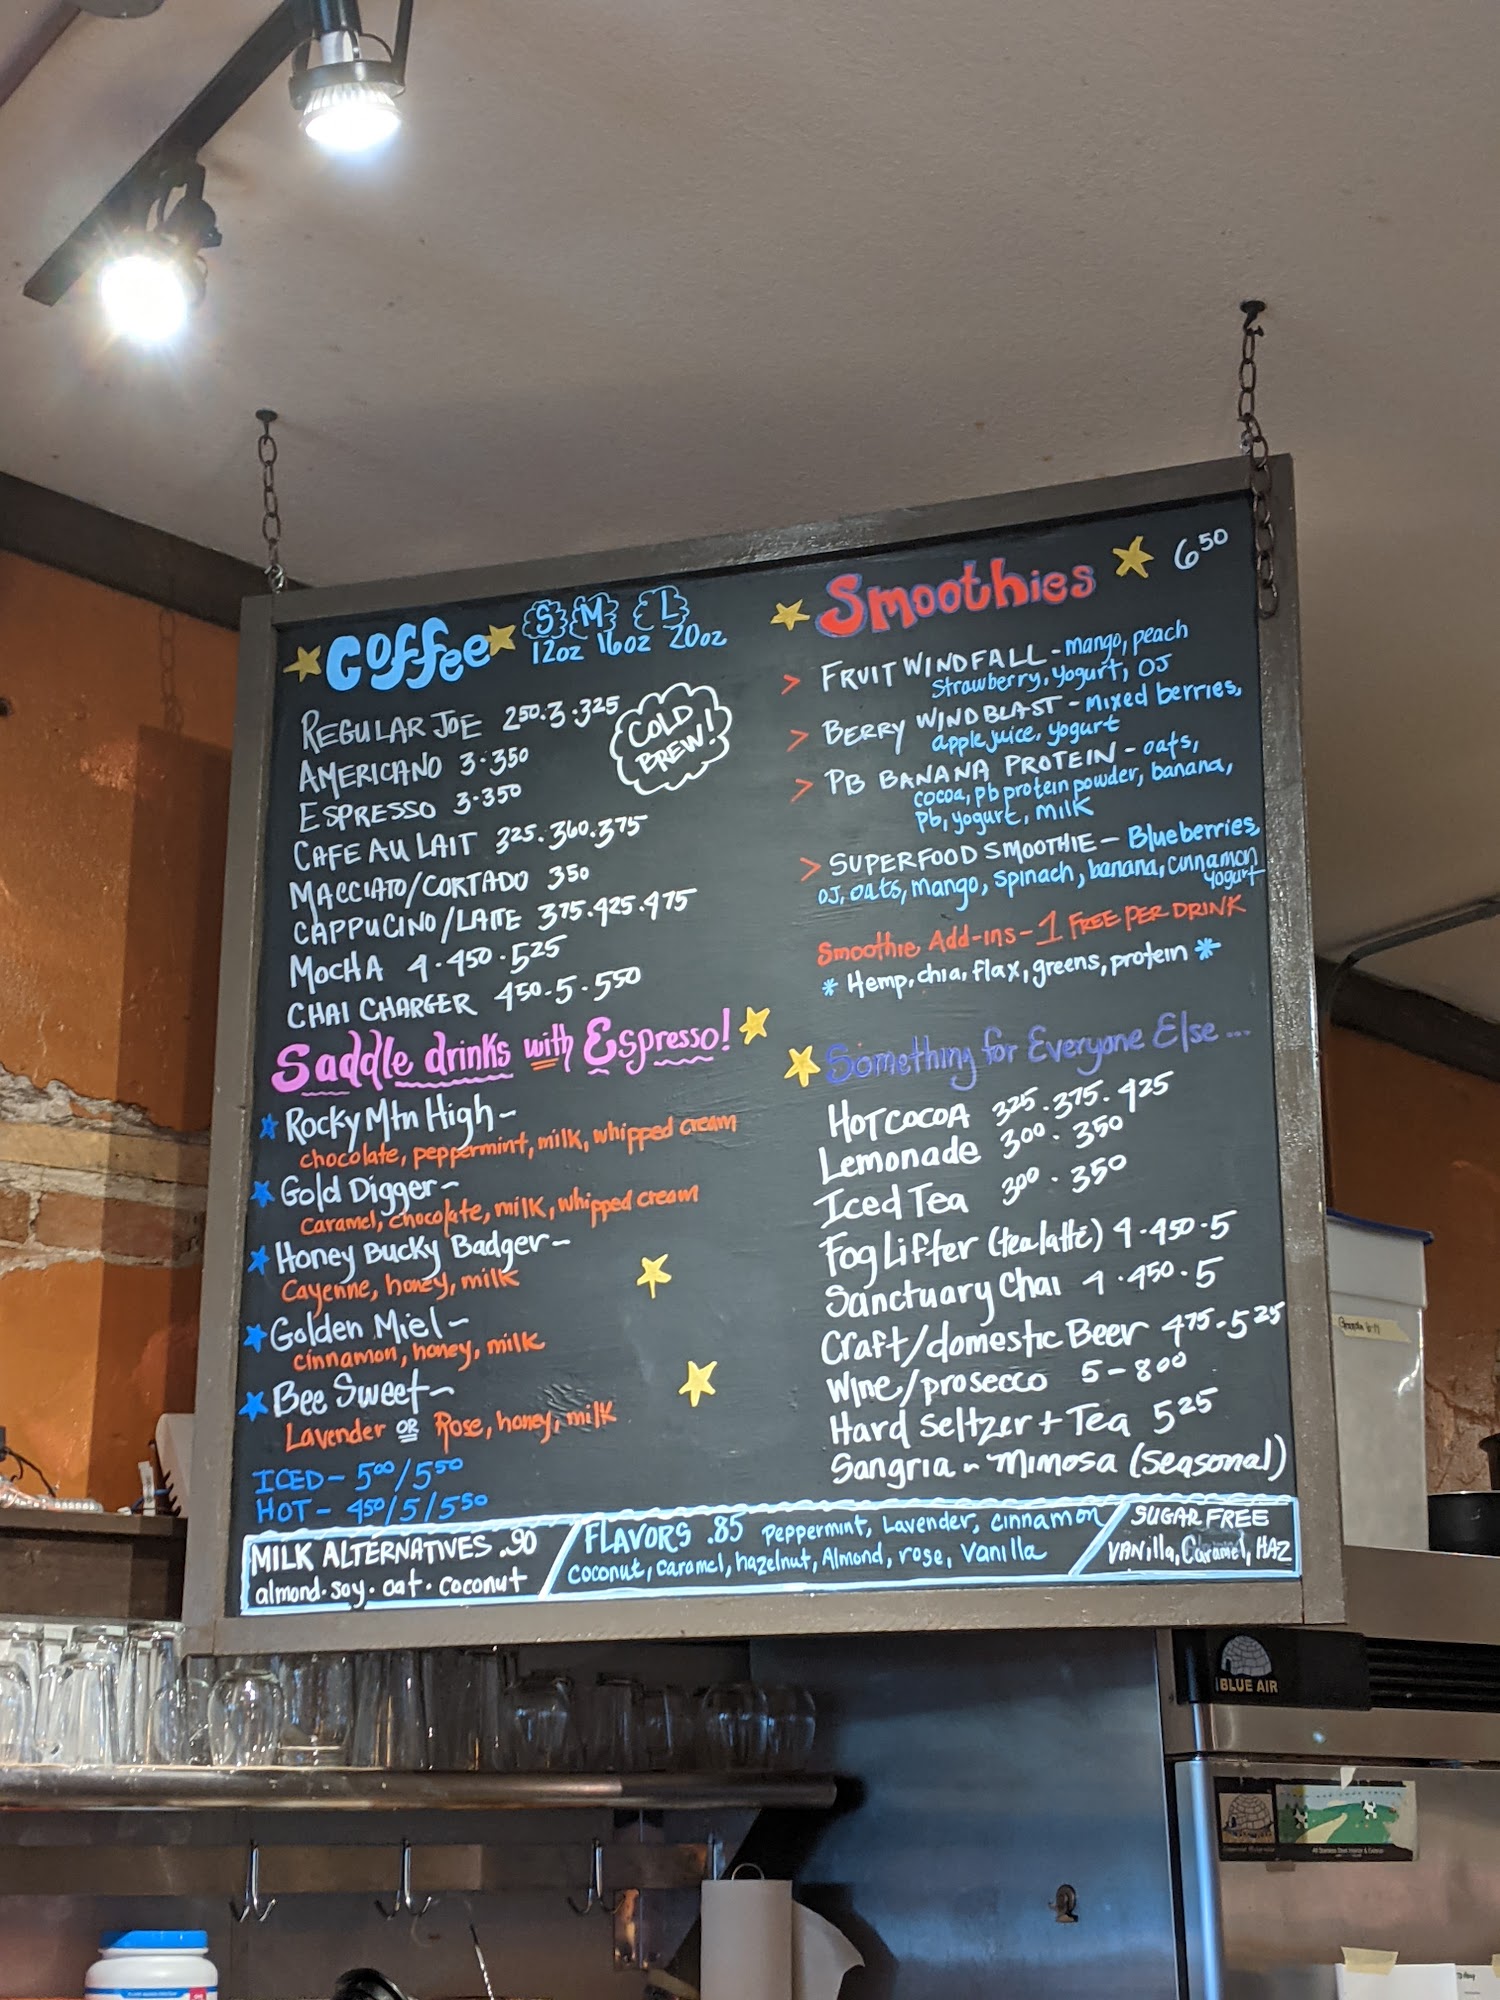 Coffee S M L
12oz 16oz 20oz
REGULAR JOE 250.3.325
COLD BREW!
AMERICANO 3.350
ESPRESSO 3.350
CAFE AU LAIT 325.360.375
MACCIATO/CORTADO 350
CAPPUCINO/LATTE 375.425.475
MOCHA 4.450.525
CHAI CHARGER 450-5.550
Saddle drinks with Espresso!
Rocky Mtn High-
chocolate, peppermint, milk, whipped cream
Gold Digger-
Caramel, chocolate, milk, whipped cream
Honey Bucky Badger-
Cayenne, honey, milk
Golden Miel-
cinnamon, honey, milk
Bee Sweet-
Lavender OR Rose, honey, milk
ICED- 500/550
HOT- 450/5/550
Smoothies 650
> FRUIT WINDFALL-mango, peach
strawberry, yogurt, OJ
> BERRY WINDBLAST-mixed berries,
apple juice, yogurt
> PB BANANA PROTEIN-oats,
cocoa, pb protein powder, banana,
Pb, yogurt, milk
> SUPERFOOD SMOOTHIE-Blueberries,
OJ, oats, mango, spinach, banana, cinnamon
yogurt
Smoothie Add-ins-1 FREE PER DRINK
* Hemp, chia, flax, greens, protein *
Something for Everyone Else...
HOT COCOA 325.375.425
Lemonade 300.350
Iced Tea 300.350
Fog Lifter (tea latté) 4.450.5
Sanctuary Chai 4.450.5
Craft/domestic Beer 475-525
Wine/prosecco 5-800
Hard Seltzer + Tea 525
Sangria ~ Mimosa (seasonal)
MILK ALTERNATIVES .90
almond.soy.oat.coconut
FLAVORS .85 Peppermint, Lavender, cinnamon
coconut, caramel, hazelnut, Almond, rose, Vanilla
SUGAR FREE
VANilla, Caramel, HAZ
BLUE AIR